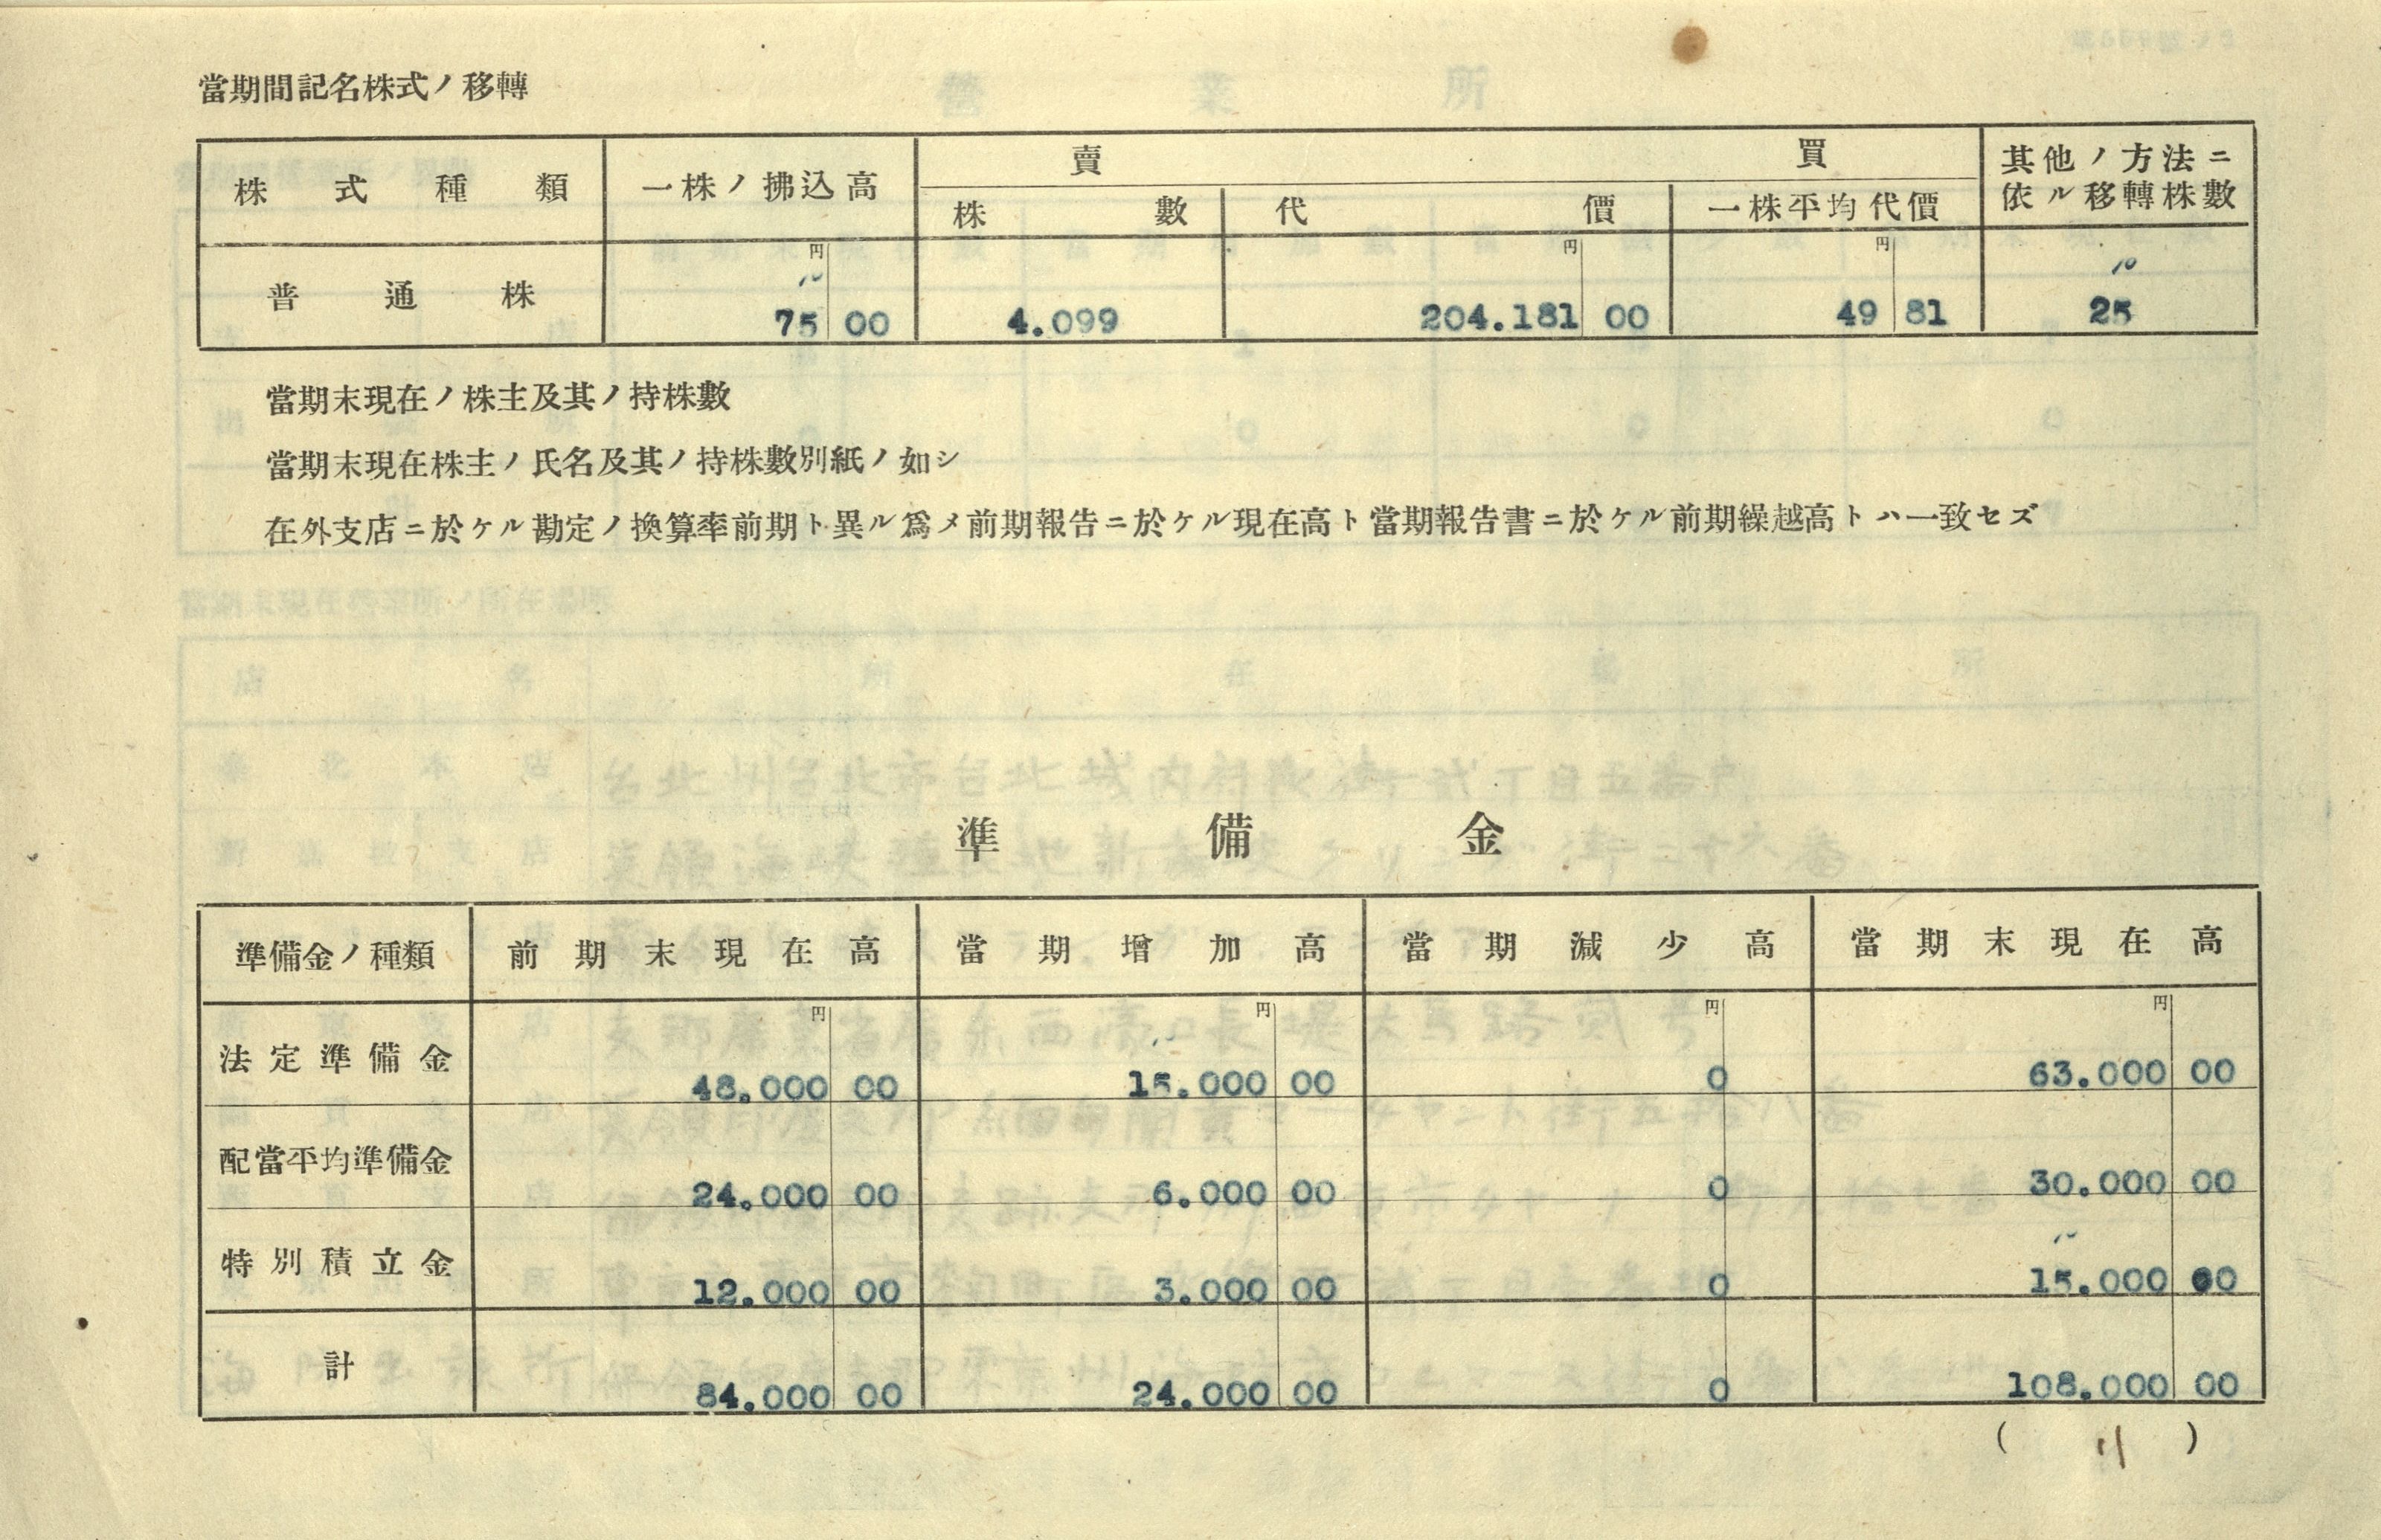 當期間記名株式ノ移轉
株式種類 一株ノ拂込高 賣買 其他ノ方法ニ依ル移轉株數
株數 代價 一株平均代價
円 円 円
普通株 75 00 4.099 204.181 00 49 81 25
當期末現在ノ株主及其ノ持株數
當期末現在株主ノ氏名及其ノ持株數別紙ノ如シ
在外支店ニ於ケル勘定ノ換算率前期ト異ル爲メ前期報告ニ於ケル現在高ト當期報告書ニ於ケル前期繰越高トハ一致セズ
準備金
準備金ノ種類 前期末現在高 當期增加高 當期減少高 當期末現在高
円 円 円 円
法定準備金 48.000 00 15.000 00 0 63.000 00
配當平均準備金 24.000 00 6.000 00 0 30.000 00
特別積立金 12.000 00 3.000 00 0 15.000 00
計 84.000 00 24.000 00 0 108.000 00
( 11 )